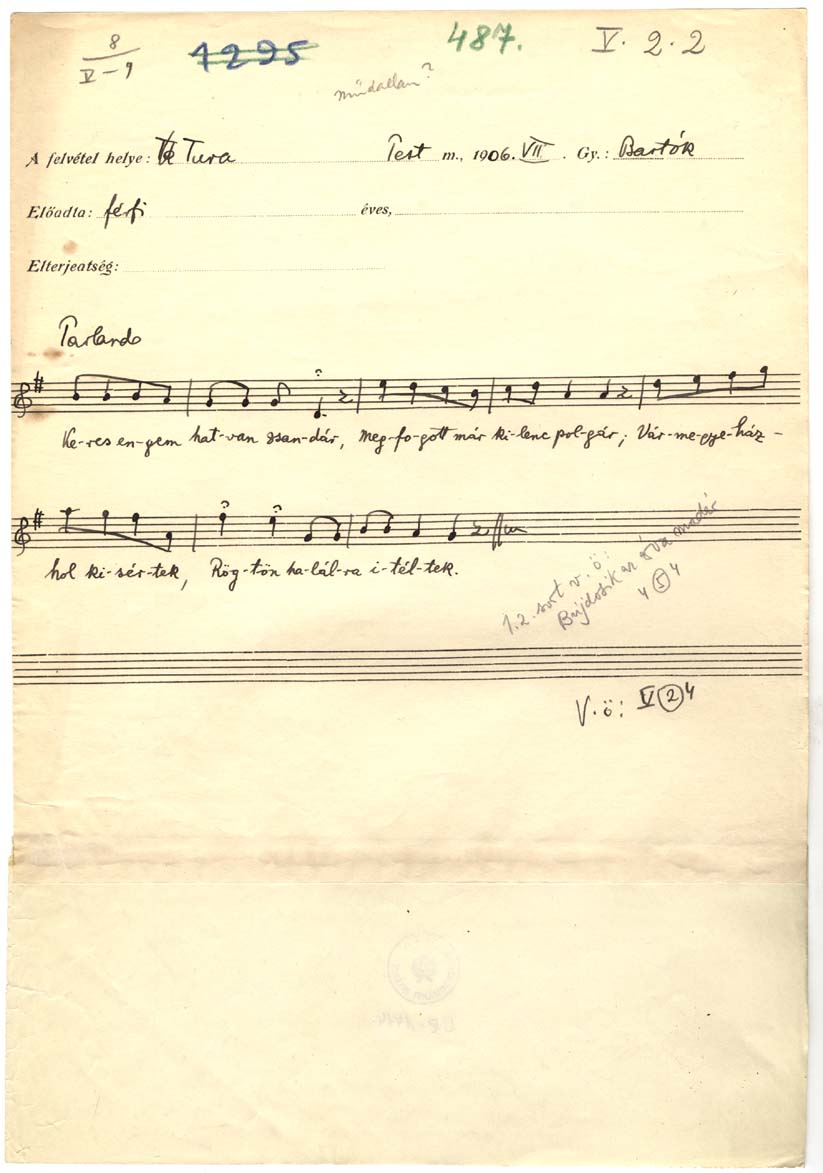 8
V-9
1295
487.
V. 2.2
műdallam?
A felvétel helye: Tura Pest m., 1906. VII. Gy.: Bartók
Előadta: férfi éves,
Elterjeatség:
Parlando
Ke-res en-gem hat-van zsan-dár, Meg-fo-gott már ki-lenc pol-gár; Vár-me-gye-ház-
hol ki-sér-tek, Rög-tön ha-lál-ra i-tél-tek.
1.2. sort v. ö:
Bujdosik az árva madár
4 5 4
V.ö: V 2 4